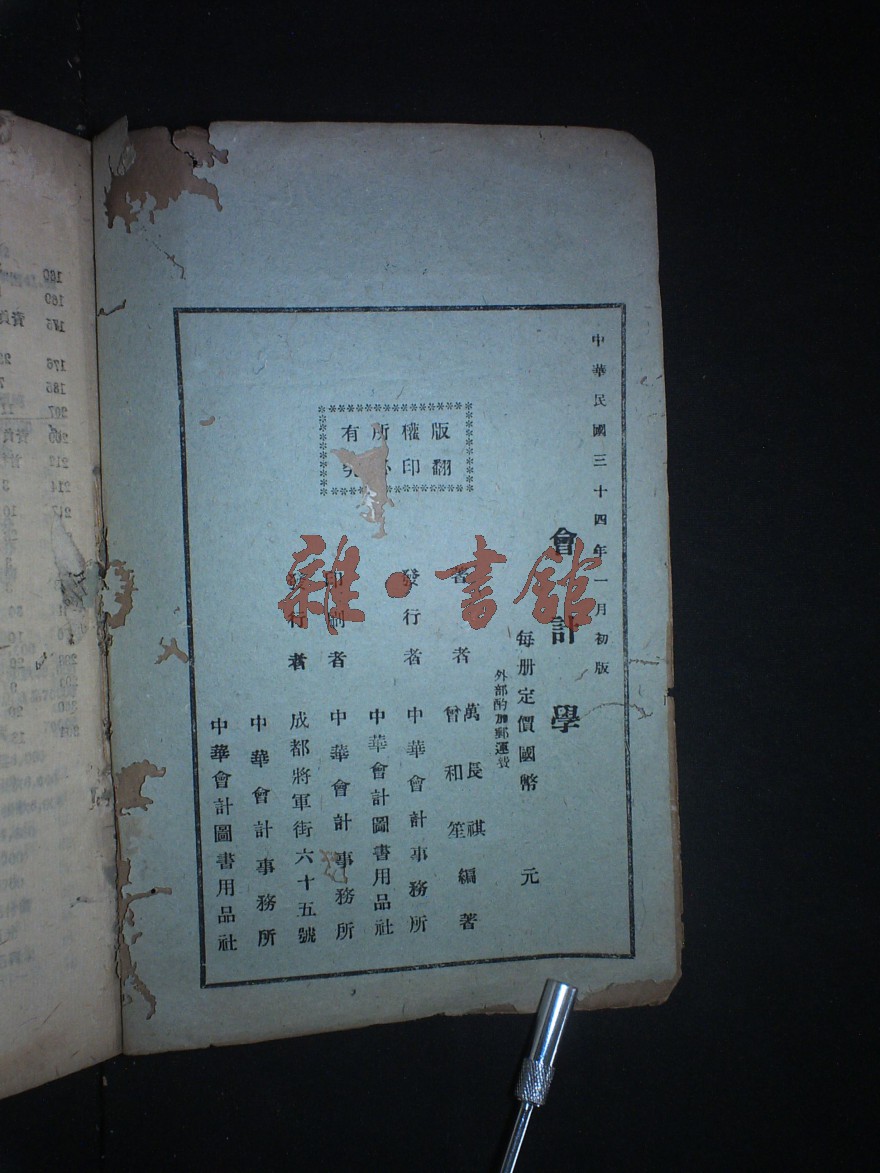 中華民國三十四年一月初版
會計學
每册定價國幣 元
外部酌加郵運費
著者 萬長祺 曾和笙 編著
發行者 中華會計事務所
中華會計圖書用品社
印刷者 中華會計事務所
成都將軍街六十五號
行者 中華會計事務所
中華會計圖書用品社
版權所有
翻印必究
雜·書館
160
160
175
176
186
207
205
212
214
217